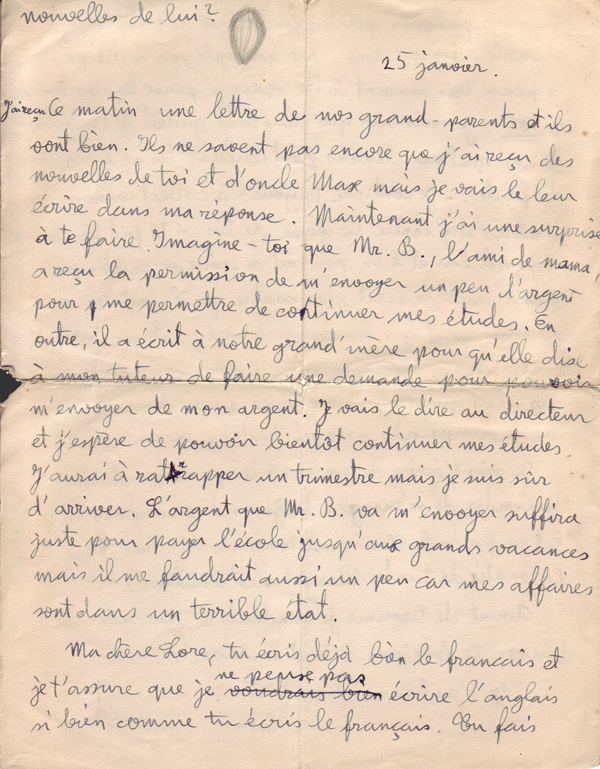 nouvelles de lui?
25 janvier.
J'ai reçu Ce matin une lettre de nos grand-parents et ils
vont bien. Ils ne savent pas encore que j'ai reçu des
nouvelles de toi et d'oncle Max mais je vais le leur
écrire dans ma réponse. Maintenant j'ai une surprise
à te faire. Imagine-toi que Mr. B., l'ami de mama,
a reçu la permission de m'envoyer un peu d'argent
pour me permettre de continuer mes études. En
outre, il a écrit à notre grand'mère pour qu'elle dise
à mon tuteur de faire une demande pour pouvoir
m'envoyer de mon argent. Je vais le dire au directeur
et j'espère de pouvoir bientôt continuer mes études.
J'aurai à rattrapper un trimestre mais je suis sûr
d'arriver. L'argent que Mr. B. va m'envoyer suffira
juste pour payer l'école jusqu'aux grands vacances
mais il me faudrait aussi un peu car mes affaires
sont dans un terrible état.
Ma chère Lore, tu écris déjà bien le francais et
ne pense pas
je t'assure que je voudrais bien écrire l'anglais
si bien comme tu écris le français. Tu fais